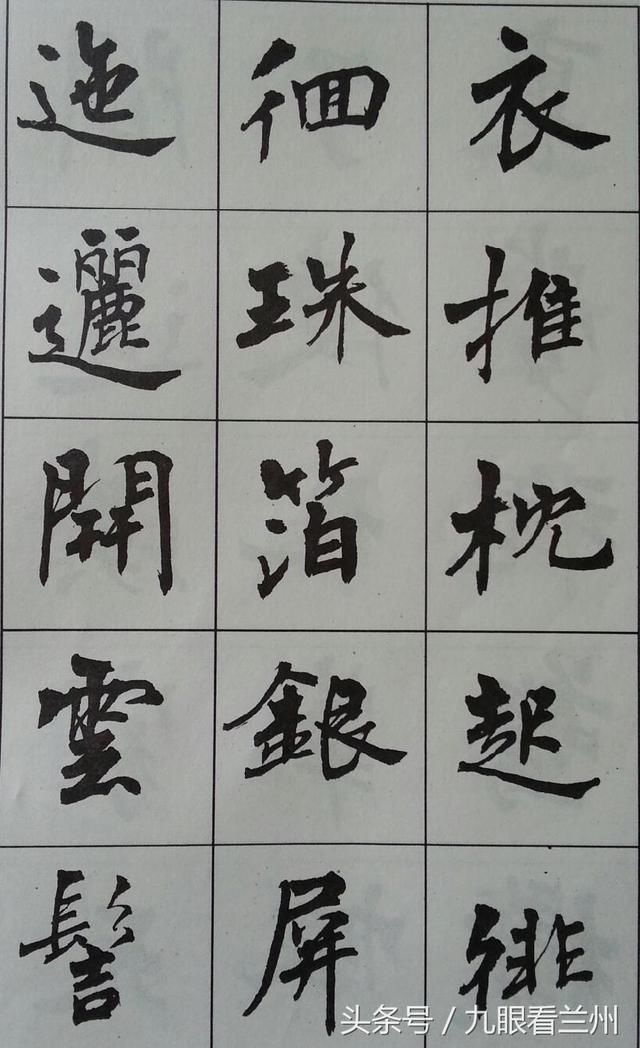 衣推枕起徘
徊珠箔銀屏
迤邐開雲髻
头条号／九眼看兰州